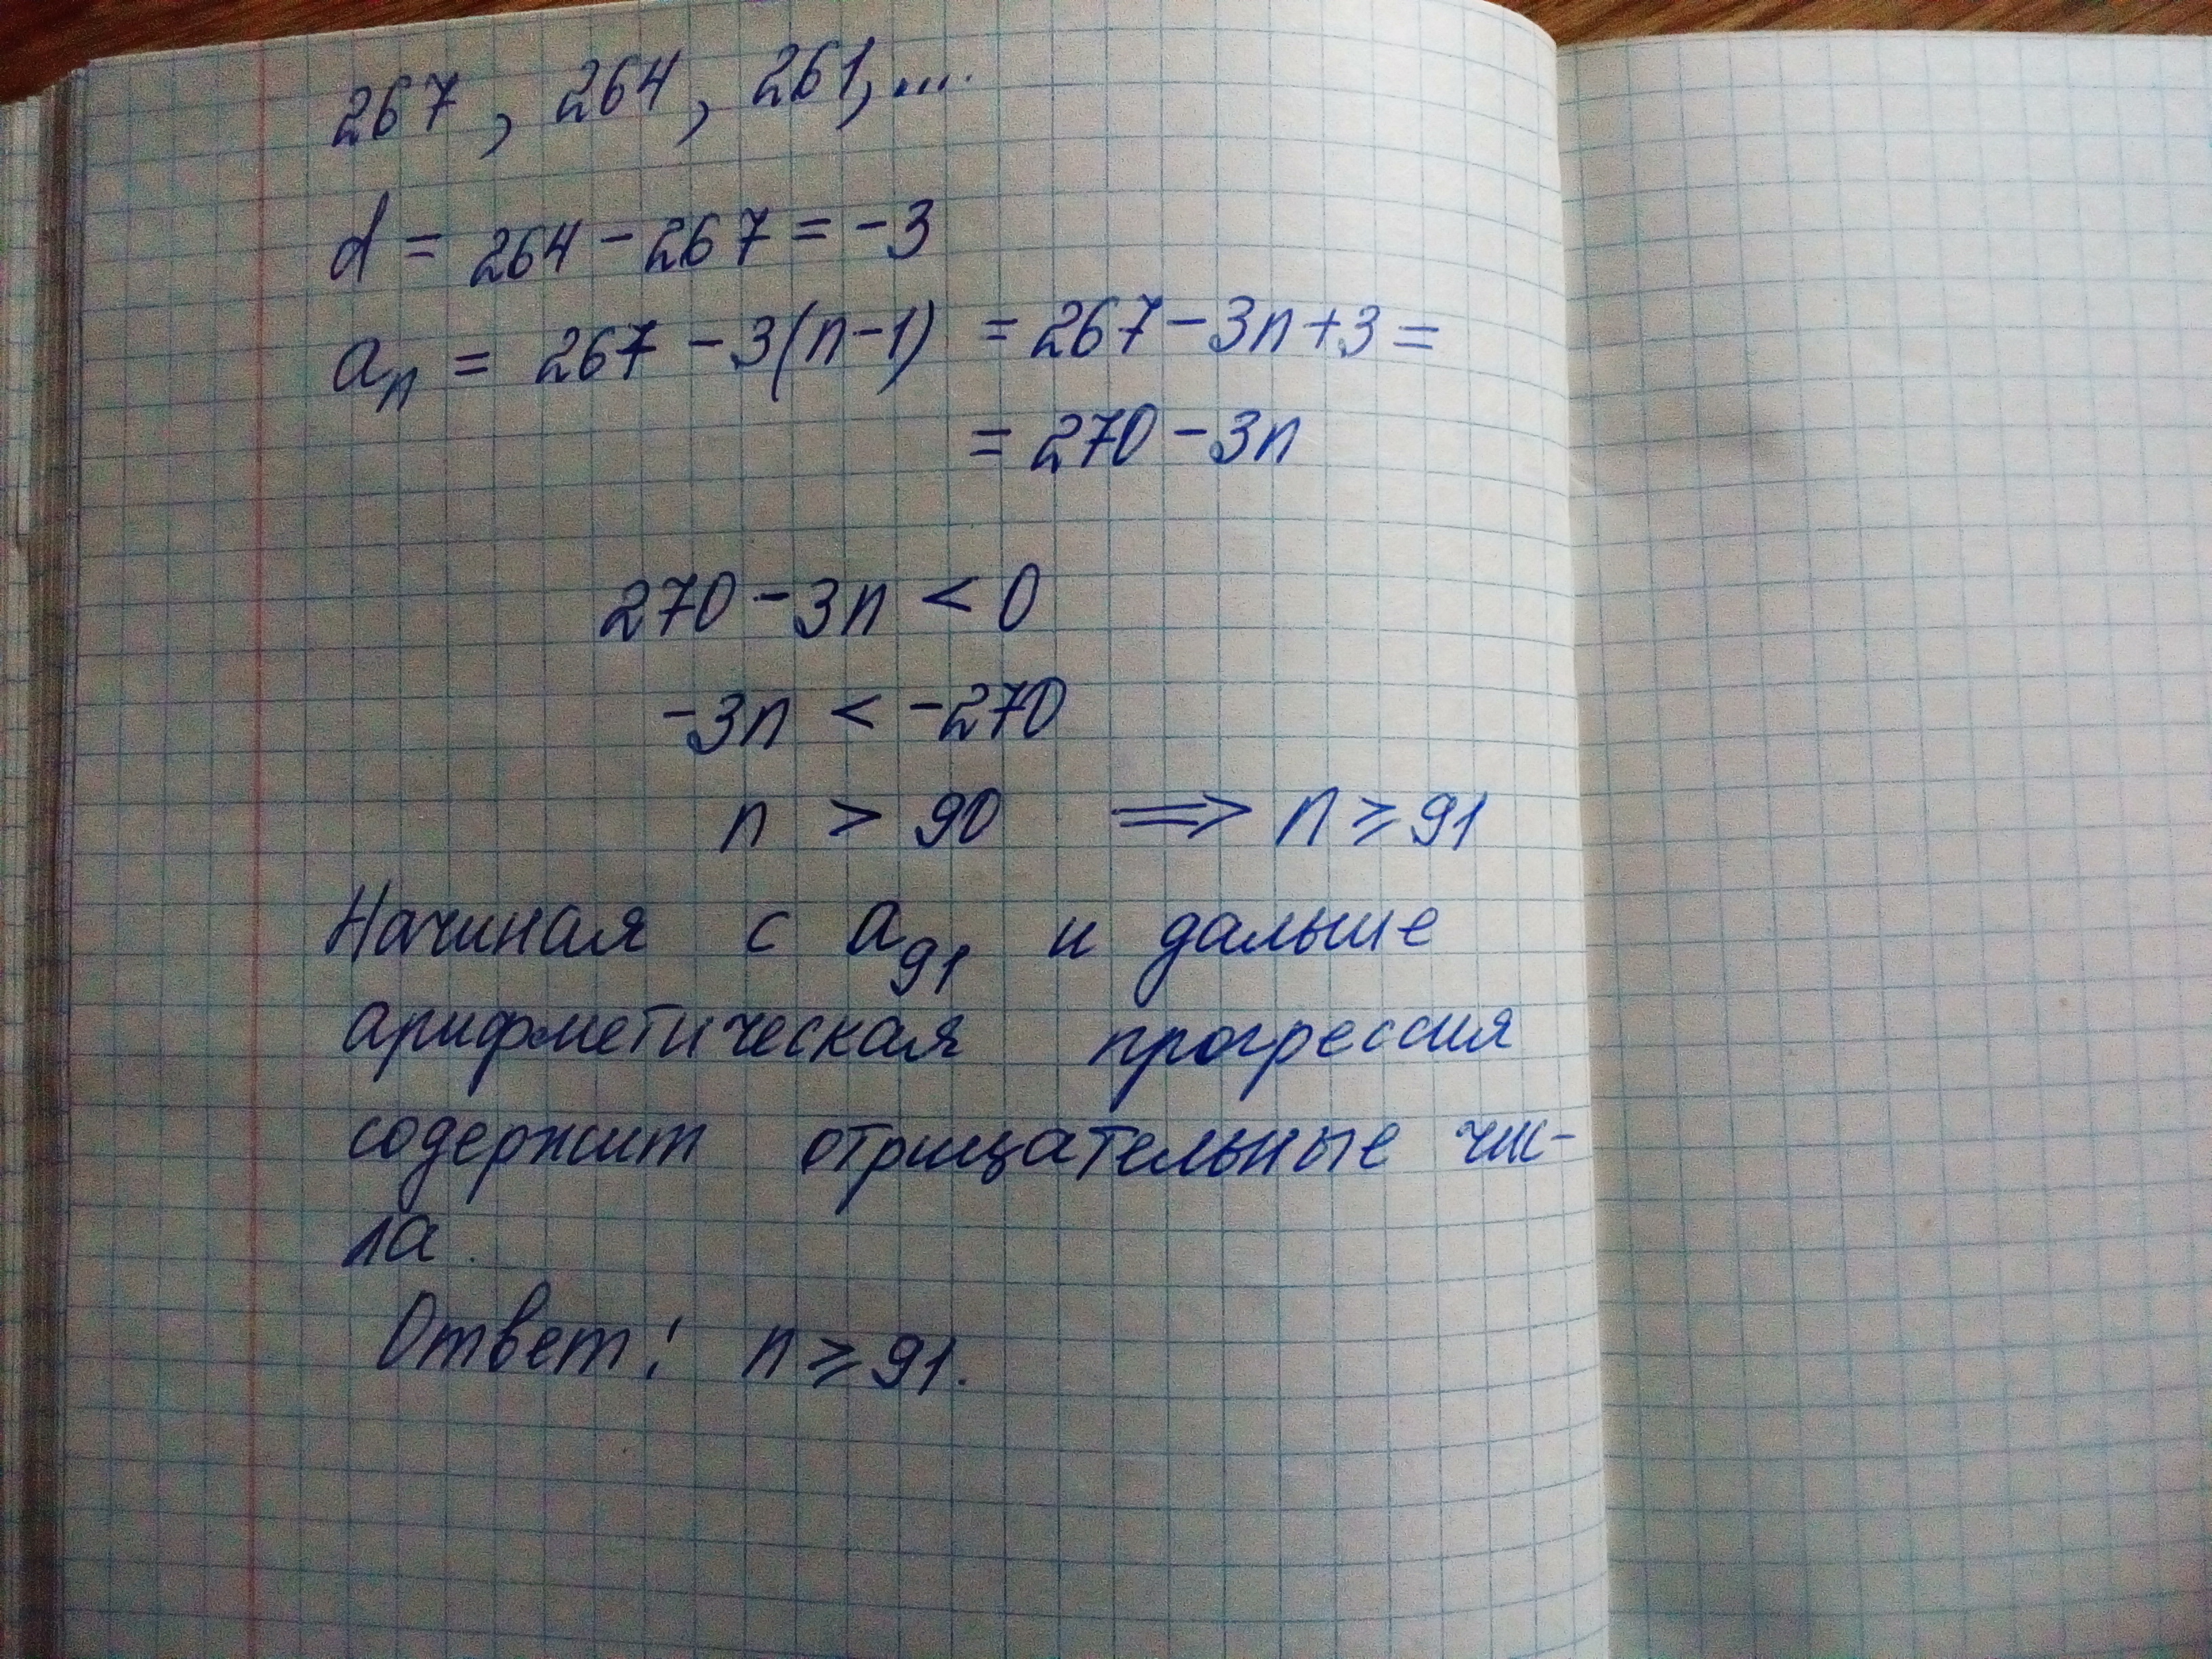 267, 264, 261, ...
d = 264 - 267 = -3
aₙ = 267 - 3(n-1) = 267 - 3n + 3 =
= 270 - 3n
270 - 3n < 0
-3n < -270
n > 90 ⟹ n ⩾ 91
Начиная с a₉₁ и дальше
арифметическая прогрессия
содержит отрицательные чис-
ла.
Ответ: n ⩾ 91.